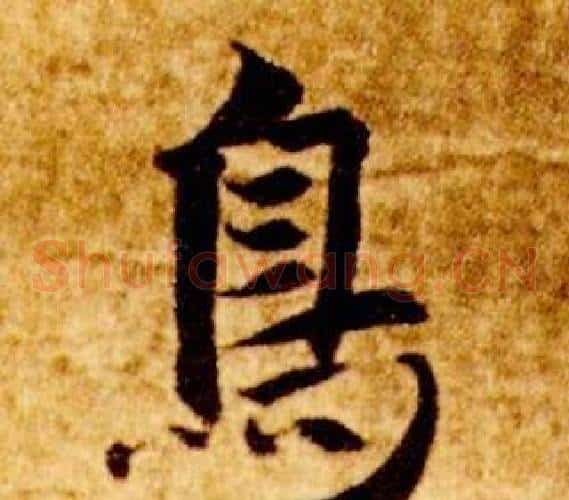 鳥
Shufawang.CN